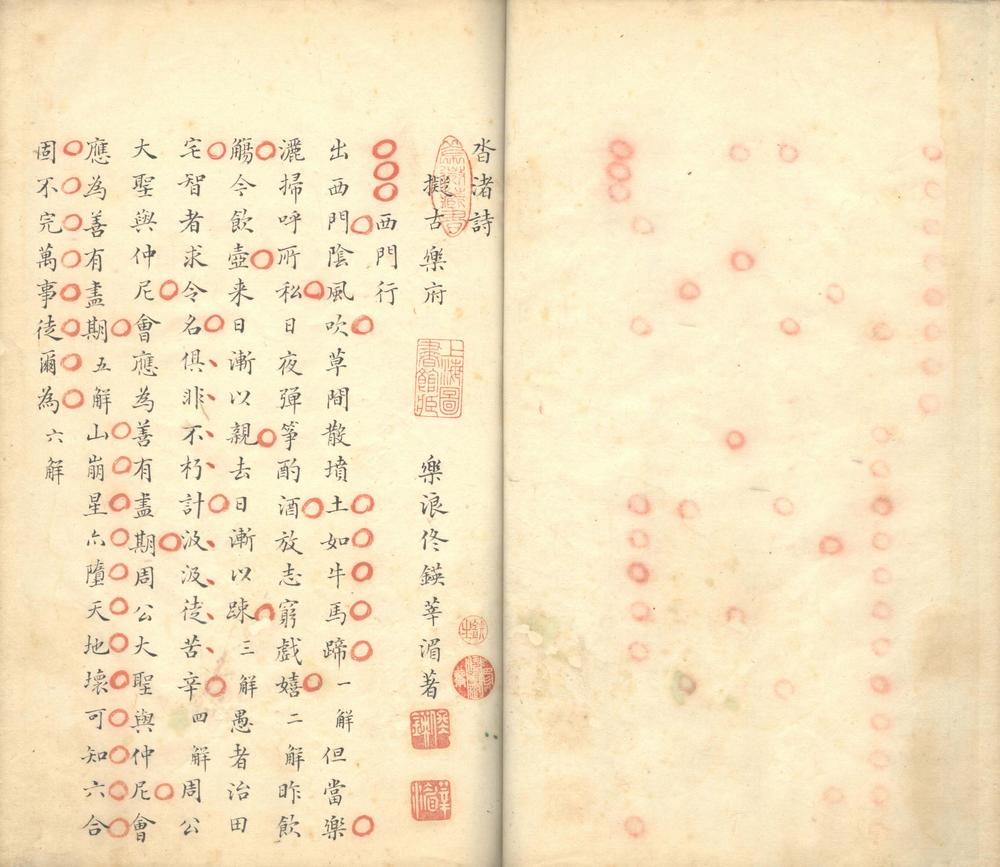 沓渚詩
擬古樂府
樂浪佟鍈莘湄著
西門行
出西門陰風吹草間散墳土如牛馬蹄一解但當樂
灑掃呼所私日夜彈箏酌酒放志窮戲嬉二解昨飲
觴今飲壺来日漸以親去日漸以踈三解愚者治田
宅智者求令名俱非不朽計汲汲徒苦辛四解周公
大聖與仲尼會應為善有盡期周公大聖與仲尼會
應為善有盡期五解山崩星亦墮天地壞可知六合
固不完萬事徒爾為六解
上海圖書館藏